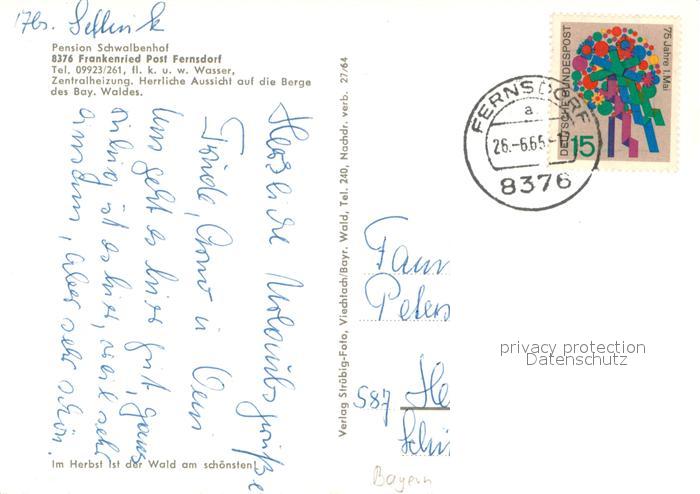 Pension Schwalbenhof
8376 Frankenried Post Fernsdorf
Tel. 09923/261, fl. k. u. w. Wasser,
Zentralheizung. Herrliche Aussicht auf die Berge
des Bay. Waldes.
Herzliche Urlaubsgrüße
uns geht es hier gut, ganz
ruhig ist es hier, weil sehr
einsam, aber sehr schön.
Im Herbst ist der Wald am schönsten!
Verlag Strübig-Foto, Viechtach/Bayr. Wald, Tel. 240, Nachdr. verb. 27/64
DEUTSCHE BUNDESPOST
75 Jahre 1. Mai
15
FERNSDORF
a
26.-6.65.-
8376
Fam
Peters
587 He
Bayern
privacy protection
Datenschutz